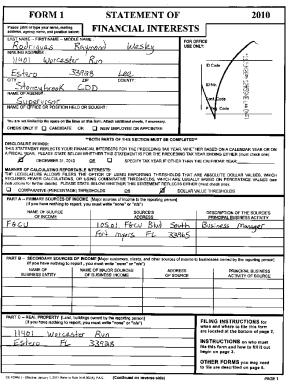 FORM 1 STATEMENT OF 2010
Please print or type your name, mailing address, agency name, and position below: FINANCIAL INTERESTS
LAST NAME -- FIRST NAME -- MIDDLE NAME : FOR OFFICE USE ONLY:
Rodriguez Raymond Wesley
MAILING ADDRESS :
11401 Worcester Run
Estero 33928 Lee
CITY : ZIP : COUNTY :
Stoneybrook CDD
NAME OF AGENCY :
Supervisor
NAME OF OFFICE OR POSITION HELD OR SOUGHT :
ID Code
ID No.
Conf. Code
P. Req. Code
You are not limited to the space on the lines on this form. Attach additional sheets, if necessary.
CHECK ONLY IF CANDIDATE OR NEW EMPLOYEE OR APPOINTEE
**BOTH PARTS OF THIS SECTION MUST BE COMPLETED**
DISCLOSURE PERIOD:
THIS STATEMENT REFLECTS YOUR FINANCIAL INTERESTS FOR THE PRECEDING TAX YEAR, WHETHER BASED ON A CALENDAR YEAR OR ON
A FISCAL YEAR. PLEASE STATE BELOW WHETHER THIS STATEMENT IS FOR THE PRECEDING TAX YEAR ENDING EITHER (must check one):
DECEMBER 31, 2010 OR SPECIFY TAX YEAR IF OTHER THAN THE CALENDAR YEAR:
MANNER OF CALCULATING REPORTABLE INTERESTS:
THE LEGISLATURE ALLOWS FILERS THE OPTION OF USING REPORTING THRESHOLDS THAT ARE ABSOLUTE DOLLAR VALUES, WHICH
REQUIRES FEWER CALCULATIONS, OR USING COMPARATIVE THRESHOLDS, WHICH ARE USUALLY BASED ON PERCENTAGE VALUES (see
instructions for further details). PLEASE STATE BELOW WHETHER THIS STATEMENT REFLECTS EITHER (must check one):
COMPARATIVE (PERCENTAGE) THRESHOLDS OR DOLLAR VALUE THRESHOLDS
PART A -- PRIMARY SOURCES OF INCOME [Major sources of income to the reporting person]
(If you have nothing to report, you must write "none" or "n/a")
NAME OF SOURCE OF INCOME
SOURCE'S ADDRESS
DESCRIPTION OF THE SOURCE'S PRINCIPAL BUSINESS ACTIVITY
FGCU 10501 FGCU Blvd South Business Manager
Fort Myers FL 33965
PART B -- SECONDARY SOURCES OF INCOME [Major customers, clients, and other sources of income to businesses owned by the reporting person]
(If you have nothing to report, you must write "none" or "n/a")
NAME OF BUSINESS ENTITY
NAME OF MAJOR SOURCES OF BUSINESS' INCOME
ADDRESS OF SOURCE
PRINCIPAL BUSINESS ACTIVITY OF SOURCE
PART C -- REAL PROPERTY [Land, buildings owned by the reporting person]
(If you have nothing to report, you must write "none" or "n/a")
11401 Worcester Run
Estero FL 33928
FILING INSTRUCTIONS for when and where to file this form are located at the bottom of page 2.
INSTRUCTIONS on who must file this form and how to fill it out begin on page 3.
OTHER FORMS you may need to file are described on page 6.
(Continued on reverse side) PAGE 1